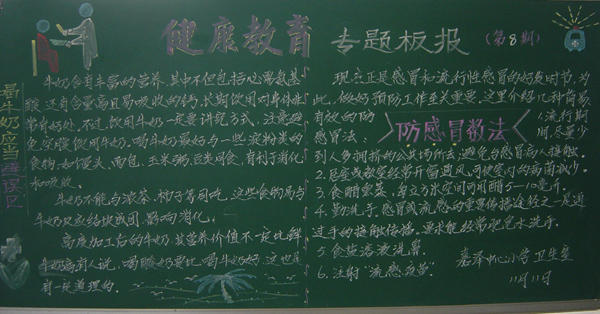 健康教育 专题板报 (第8期)
喝牛奶应当走误区
牛奶含有丰富的营养,其中不但包括必需氨基
酸,还有含量高且易吸收的钙,长期饮用对身体非
常有好处。不过,饮用牛奶一定要讲究方式,注意避
免空腹饮用牛奶,喝牛奶最好与一些淀粉类的
食物,如馒头、面包、玉米粥、豆类同食,有利于消化
和吸收。
牛奶不能与浓茶、桔子等同吃,这些食物易与
牛奶反应结块成团,影响消化。
高度加工后的牛奶,其营养价值不一定比鲜
牛奶高,有人说,喝酸奶要比喝牛奶好,这也是
有一定道理的。
现在正是感冒和流行性感冒的好发时节,为
此,做好预防工作至关重要,这里介绍几种简易
有效的防
感冒法:
防感冒数法
1.流行期
间尽量少
到人多拥挤的公共场所去,避免与感冒病人接触。
2.居室或教室经常开窗通风,可使室内的病菌减少。
3.食醋熏蒸,每立方米空间可用醋5—10毫升。
4.勤洗手,感冒或流感的重要传播途径之一是通
过手的接触传播,要求能经常肥皂水洗手。
5.食盐溶液洗鼻。
6.注射“流感疫苗”
嘉泽中心小学卫生室
11月11日